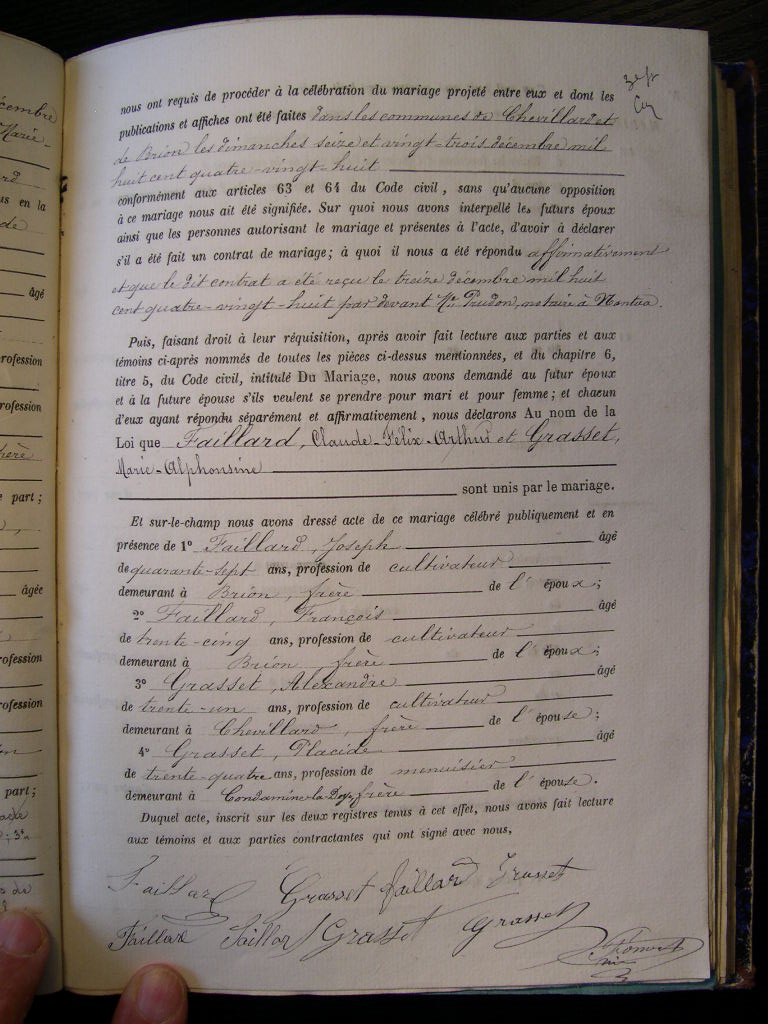 nous ont requis de procéder à la célébration du mariage projeté entre eux et dont les
publications et affiches ont été faites dans les communes de Chevillard et
de Brion les dimanches seize et vingt-trois décembre mil
huit cent quatre-vingt-huit
conformément aux articles 63 et 64 du Code civil, sans qu'aucune opposition
à ce mariage nous ait été signifiée. Sur quoi nous avons interpellé les futurs époux
ainsi que les personnes autorisant le mariage et présentes à l'acte, d'avoir à déclarer
s'il a été fait un contrat de mariage; à quoi il nous a été répondu affirmativement
et que le dit contrat a été reçu le treize décembre mil huit
cent quatre-vingt-huit par devant Me Prudon, notaire à Nantua.
Puis, faisant droit à leur réquisition, après avoir fait lecture aux parties et aux
témoins ci-après nommés de toutes les pièces ci-dessus mentionnées, et du chapitre 6,
titre 5, du Code civil, intitulé Du Mariage, nous avons demandé au futur époux
et à la future épouse s'ils veulent se prendre pour mari et pour femme; et chacun
d'eux ayant répondu séparément et affirmativement, nous déclarons Au nom de la
Loi que Faillard, Claude-Félix-Arthur et Grasset,
Marie-Alphonsine
sont unis par le mariage.
Et sur-le-champ nous avons dressé acte de ce mariage célébré publiquement et en
présence de 1o Faillard, Joseph âgé
de quarante-sept ans, profession de cultivateur
demeurant à Brion, frère de l'époux;
2o Faillard, François âgé
de trente-cinq ans, profession de cultivateur
demeurant à Brion, frère de l'époux;
3o Grasset, Alexandre âgé
de trente-un ans, profession de cultivateur
demeurant à Chevillard, frère de l'épouse;
4o Grasset, Placide âgé
de trente-quatre ans, profession de menuisier
demeurant à Condamine-la-Doye, frère de l'épouse.
Duquel acte, inscrit sur les deux registres tenus à cet effet, nous avons fait lecture
aux témoins et aux parties contractantes qui ont signé avec nous,
Faillard Grasset faillard Grasset
Faillar Faillar Grasset Grasset